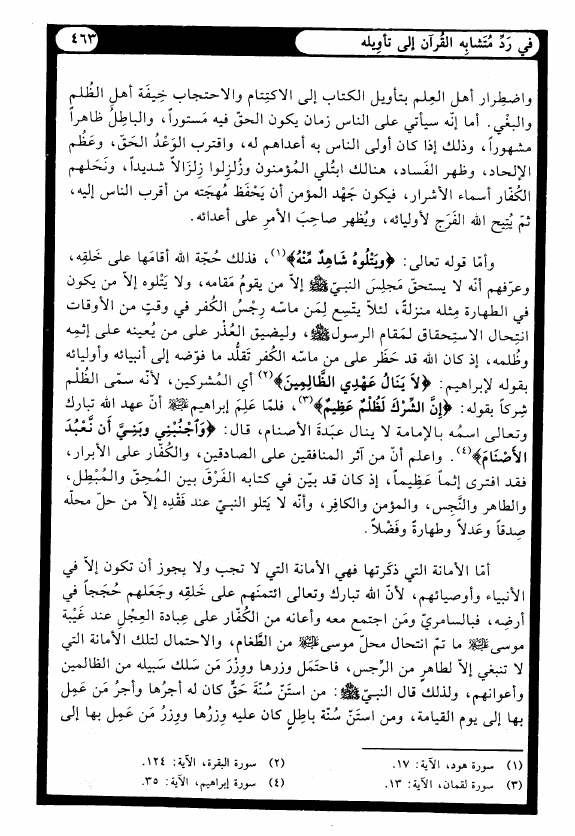 في رَدِّ مُتَشابِه القُرآن إلى تأوِيله
٤٦٣
واضطِرار أهل العِلم بتأويل الكتاب إلى الاكتِتام والاحتجاب خِيفَة أهل الظُلم
والبغْي. أما إنّه سيأتي على الناس زمان يكون الحقّ فيه مَستوراً، والباطِلُ ظاهراً
مشهوراً، وذلك إذا كان أولى الناس به أعداهم له، واقترب الوَعْدُ الحَقّ، وعَظُم
الإلحاد، وظهر الفَساد، هنالك ابتُلي المُؤمنون وزُلزِلوا زِلزَالاً شديداً، ونَحَلهم
الكُفّار أسماء الأشرار، فيكون جَهْد المؤمن أن يَحْفَظ مُهجَته من أقرب الناس إليه،
ثمّ يُتِيح الله الفَرَج لأوليائه، ويُظهر صاحِبَ الأمرِ على أعدائه.
وأمّا قوله تعالى: ﴿وَيَتْلُوهُ شَاهِدٌ مِّنْهُ﴾(١)، فذلك حُجّة الله أقامَها على خَلقِه،
وعرّفهم أنّه لا يستحقّ مَجلِسَ النبيّ ﷺ إلاّ من يقومُ مقامه، ولا يَتْلوه إلاّ من يكون
في الطهارة مِثله منزلةً، لئلاّ يتّسِع لِمَن ماسّه رِجْسُ الكُفر في وقتٍ من الأوقات
انتِحال الاستِحقاق لمَقام الرسول ﷺ، وليضيق العُذْر على من يُعينه على إثمِه
وظُلمه، إذ كان الله قد حَظَر على من ماسّه الكُفر تَقلُّد ما فوّضه إلى أنبيائه وأوليائه
بقوله لإبراهيم: ﴿لاَ يَنَالُ عَهْدِي الظَّالِمِينَ﴾(٢) أي المُشركين، لأنّه سمّى الظُلْم
شِركاً بقوله: ﴿إِنَّ الشِّرْكَ لَظُلْمٌ عَظِيمٌ﴾(٣)، فلمّا عَلِمَ إبراهيم ﷺ أنّ عهد الله تبارك
وتعالى اسمُه بالإمامة لا ينال عبَدَةَ الأصنام، قال: ﴿وَٱجْنُبْنِي وبَنِيَّ أَن نَّعْبُدَ
الأَصْنَامَ﴾(٤). واعلم أنّ من آثر المنافقين على الصادقين، والكُفّار على الأبرار،
فقد افترى إثماً عَظِيماً، إذ كان قد بيّن في كتابه الفَرْق بين المُحِقّ والمُبْطِل،
والطاهر والنَّجِس، والمؤمن والكافِر، وأنّه لا يَتلو النبيّ عند فَقْدِه إلاّ من حلّ محلّه
صِدقاً وعَدلاً وطهارةً وفَضْلاً.
أمّا الأمانة التي ذكَرتها فهي الأمانة التي لا تجب ولا يجوز أن تكون إلاّ في
الأنبياء وأوصيائهم، لأنّ الله تبارك وتعالى ائتمنَهم على خَلقِه وجَعلهم حُجَجاً في
أرضِه، فبالسامريّ ومَن اجتمع معه وأعانه من الكُفّار على عِبادة العِجْل عند غَيْبة
موسى ﷺ ما تمّ انتِحال محلّ موسى ﷺ من الطَّغام، والاحتمال لتلك الأمانة التي
لا تنبغي إلاّ لطاهرٍ من الرِّجس، فاحتَمل وزرها ووِزْرَ مَن سَلك سَبيله من الظالمين
وأعوانهم، ولذلك قال النبيّ ﷺ: من استَنّ سُنّة حَقٍّ كان له أجرُها وأجرُ مَن عَمِل
بها إلى يوم القيامة، ومن استَنّ سُنّة باطِلٍ كان عليه وِزرُها ووِزرُ مَن عَمِل بها إلى
(١) سورة هود، الآية: ١٧.
(٢) سورة البقرة، الآية: ١٢٤.
(٣) سورة لقمان، الآية: ١٣.
(٤) سورة إبراهيم، الآية: ٣٥.